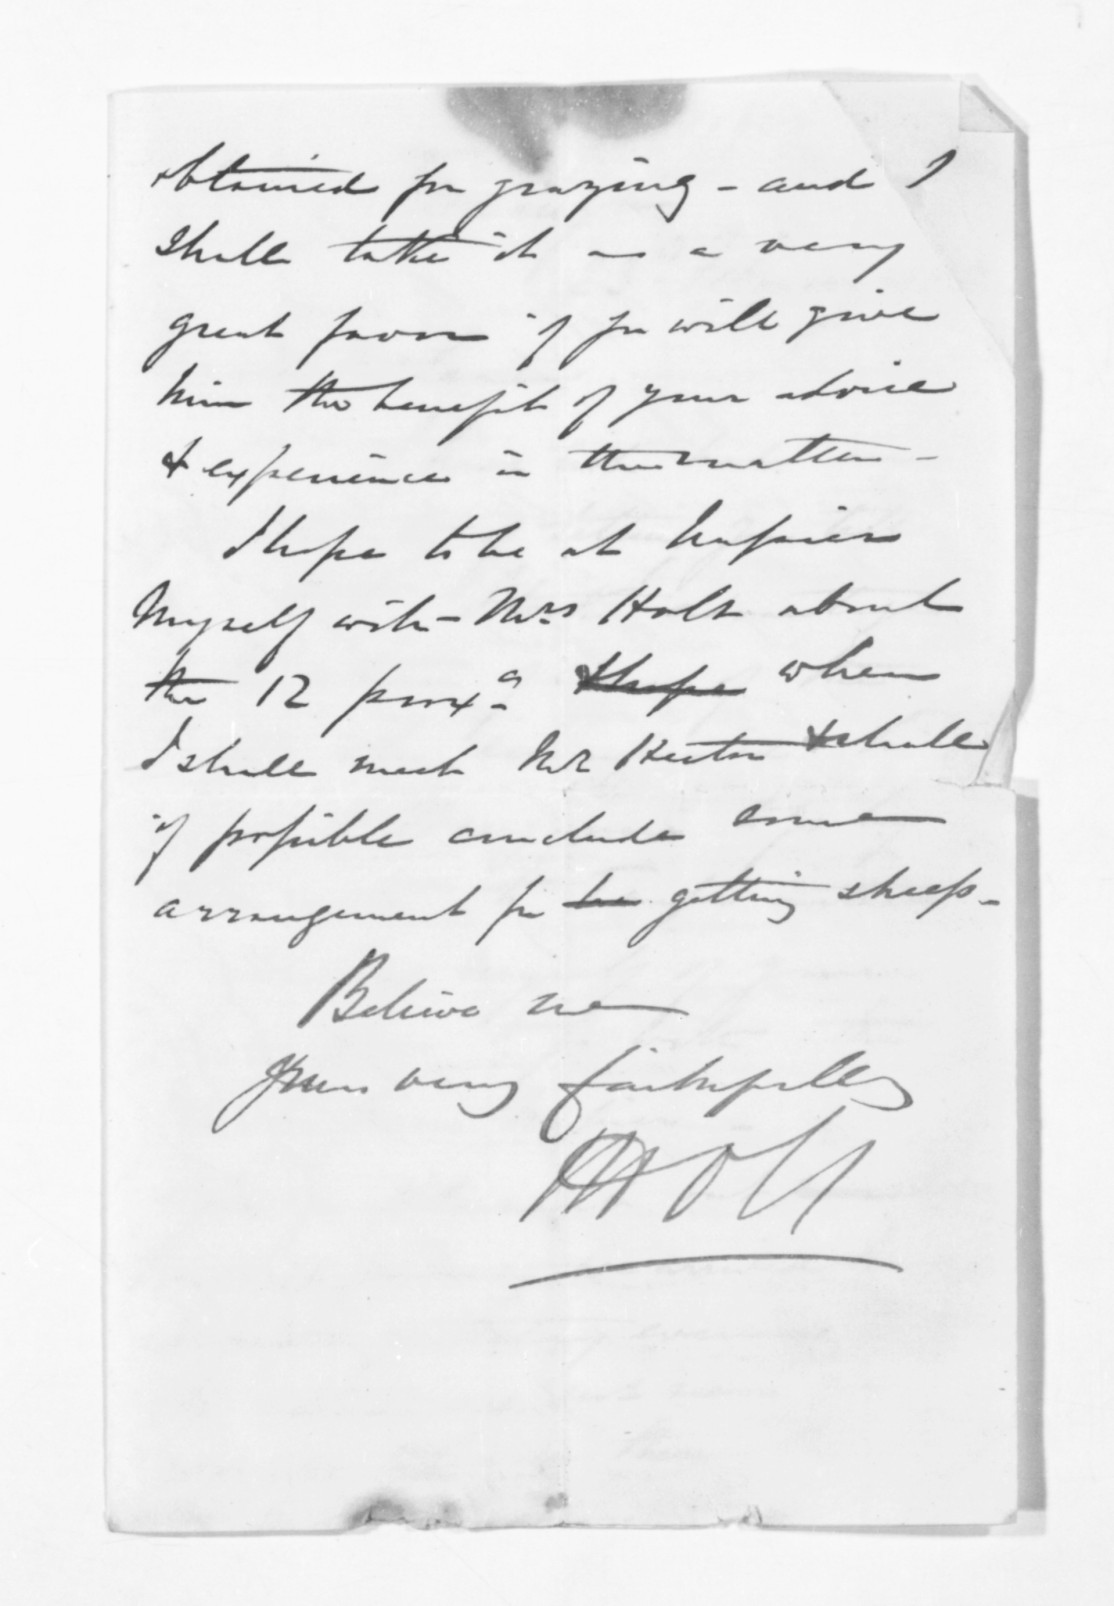 obtained for grazing - and I
shall take it as a very
great favor if you will give
him the benefit of your advice
& experience in the matter -
I hope to be at Napier
Myself with - Mrs Holt about
the 12 proxo. & hope when
I shall meet Mr Heston & shall
if possible conclude some
arrangement for getting sheep -
Believe me
Yours very faithfully
H Holt